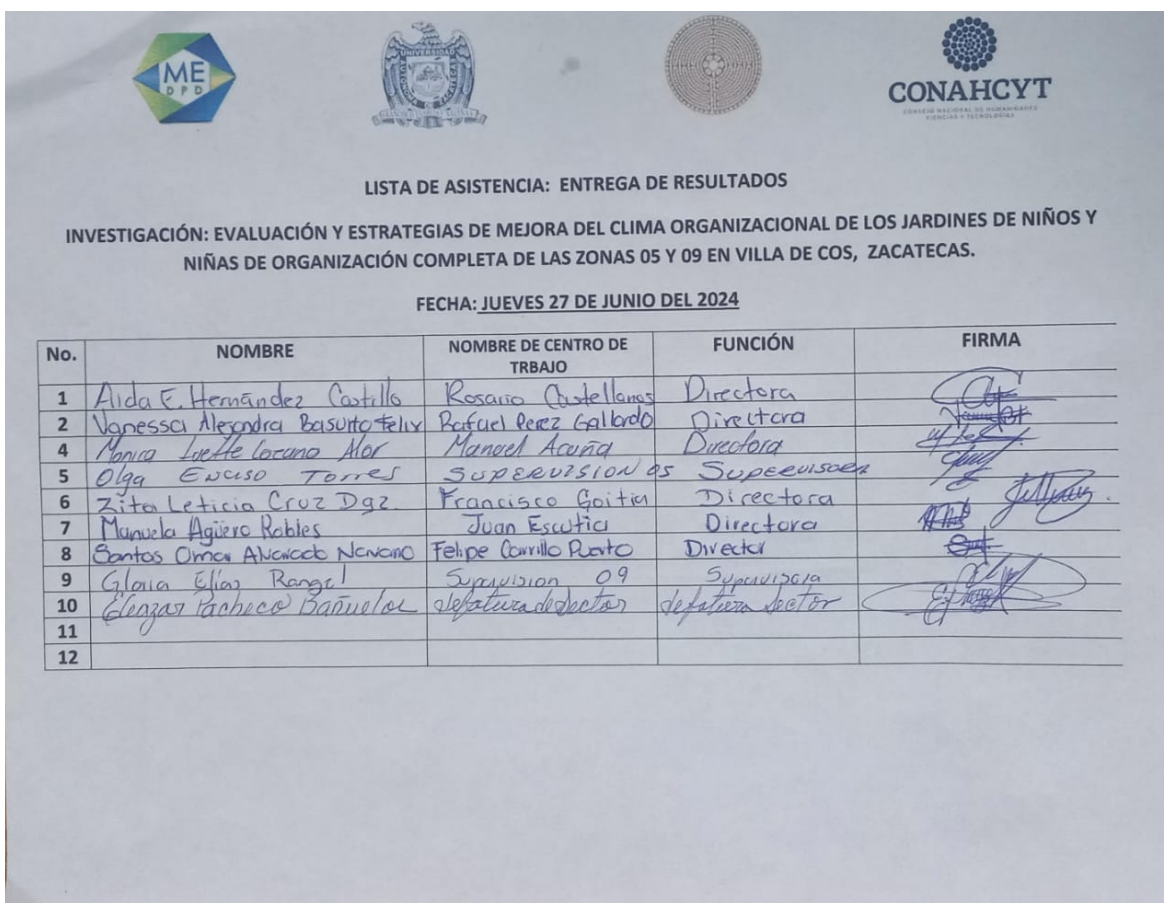 ME
DPD
UNIVERSIDAD
AUTÓNOMA DE ZACATECAS
CONAHCYT
CONSEJO NACIONAL DE HUMANIDADES
CIENCIAS Y TECNOLOGÍAS
LISTA DE ASISTENCIA: ENTREGA DE RESULTADOS
INVESTIGACIÓN: EVALUACIÓN Y ESTRATEGIAS DE MEJORA DEL CLIMA ORGANIZACIONAL DE LOS JARDINES DE NIÑOS Y
NIÑAS DE ORGANIZACIÓN COMPLETA DE LAS ZONAS 05 Y 09 EN VILLA DE COS, ZACATECAS.
FECHA: JUEVES 27 DE JUNIO DEL 2024
No. NOMBRE NOMBRE DE CENTRO DE TRBAJO FUNCIÓN FIRMA
1 Aida E. Hernández Castillo Rosario Castellanos Directora
2 Vanessa Alejandra Basurto Felix Rafael Perez Gallardo Directora
4 Monica Ivette Lozano Alor Manuel Acuña Directora
5 Olga Enciso Torres SUPERVISION 05 Supervisora
6 Zita Leticia Cruz Dgz. Francisco Goitia Directora
7 Manuela Agüero Robles Juan Escutia Directora
8 Santos Omar Alvarado Navarro Felipe Carrillo Puerto Director
9 Gloria Elías Rangel Supervision 09 Supervisora
10 Pacheco Bañuelos Jefatura de Sector Jefatura Sector
11
12